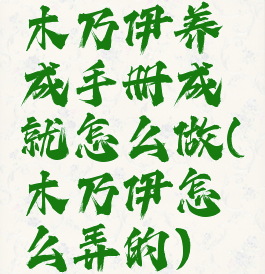 木乃伊养
成手册成
就怎么做(
木乃伊怎
么弄的)